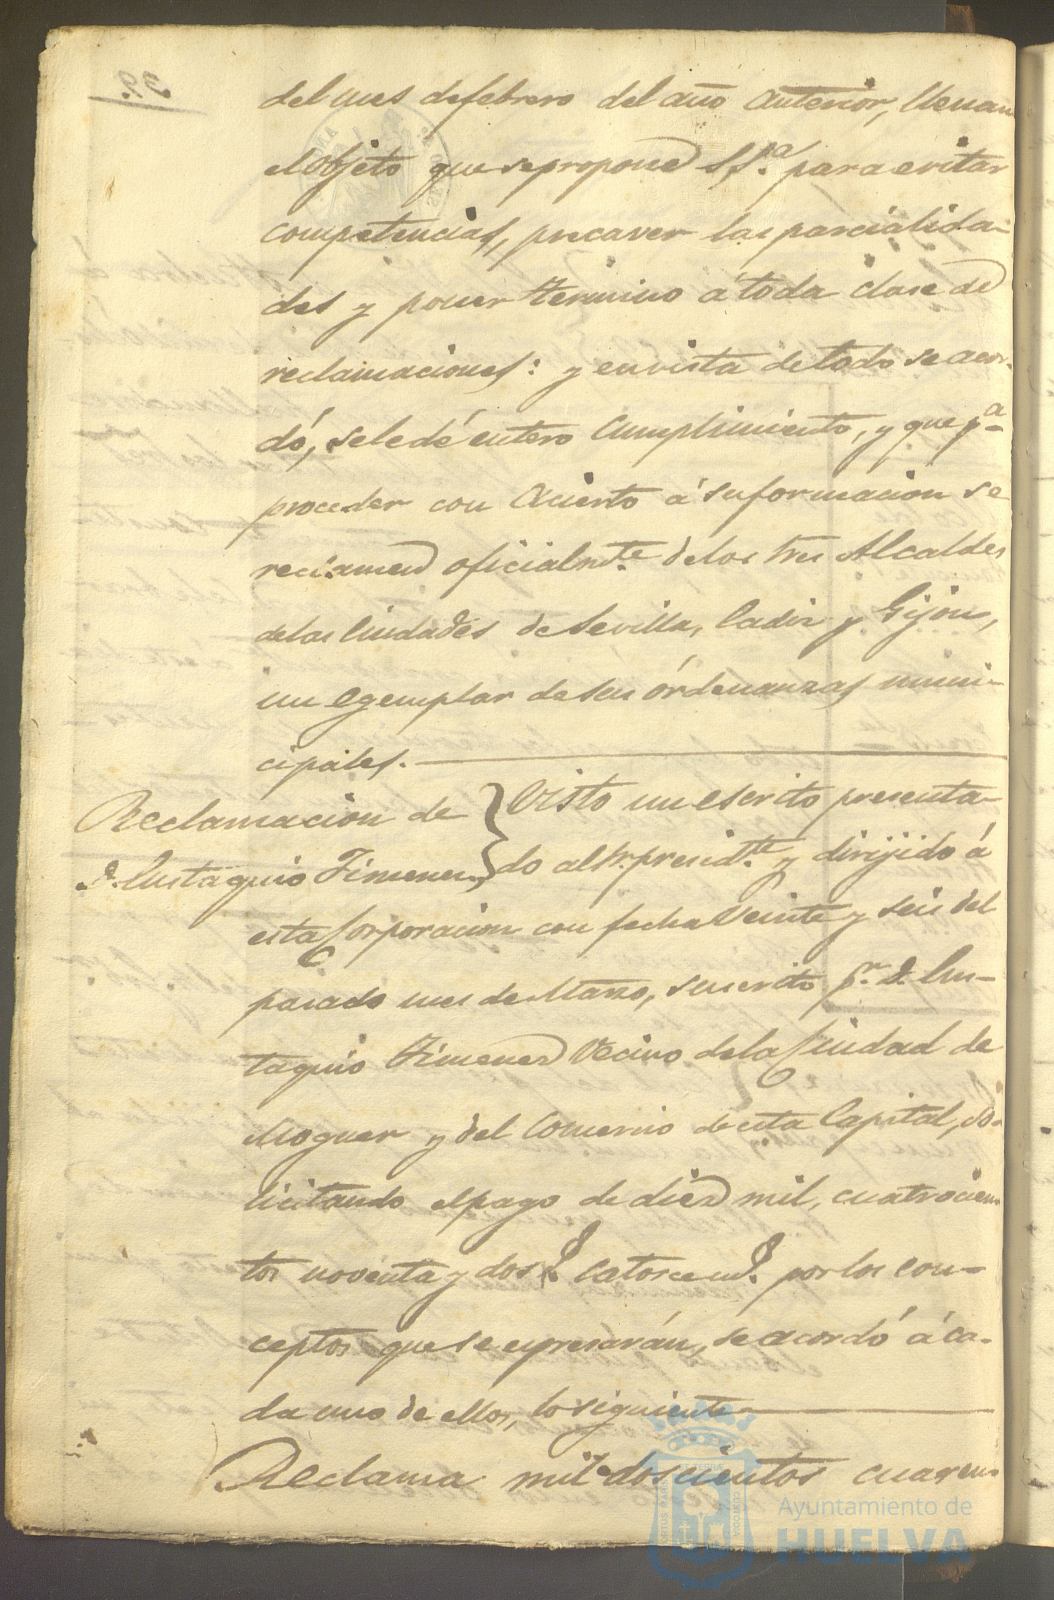 del mes de febrero del año anterior, llenan
el objeto que se propone S. Sª. para evitar
competencias, precaver las parcialida-
des y poner termino á toda clase de
reclamaciones: y en vista de todo se acor-
dó, se le dé entero cumplimiento, y que pª
proceder con acierto á su formacion se
reclamen oficialmte. de los tres Alcaldes
de las Ciudades de Sevilla, Cadiz y Gijon,
un egemplar de sus órdenanzas muni-
cipales.
Reclamacion de
D. Eustaquio Jimenez
Visto un escrito presenta-
do al Sr. presidte. y dirijido á
esta Corporacion con fecha veinte y seis del
pasado mes de Marzo, suscrito pr. D. Eus-
taquio Jimenez vecino de la Ciudad de
Moguer y del Comercio de esta Capital, so-
licitando el pago de diez mil, cuatrocien-
tos noventa y dos rs. catorce ms. por los con-
ceptos que se espresarán, se acordó á ca-
da uno de ellos, lo siguiente
Reclama mil doscientos cuaren-
Ayuntamiento de
HUELVA